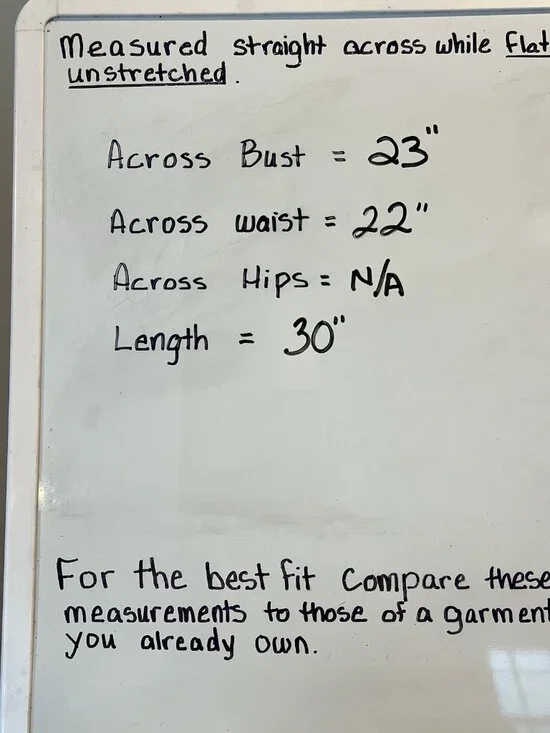 Measured straight across while flat
unstretched.
Across Bust = 23"
Across waist = 22"
Across Hips = N/A
Length = 30"
For the best fit Compare these
measurements to those of a garment
you already own.